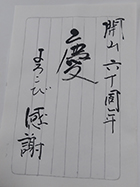 開山六十周年
慶
よろこび
感謝